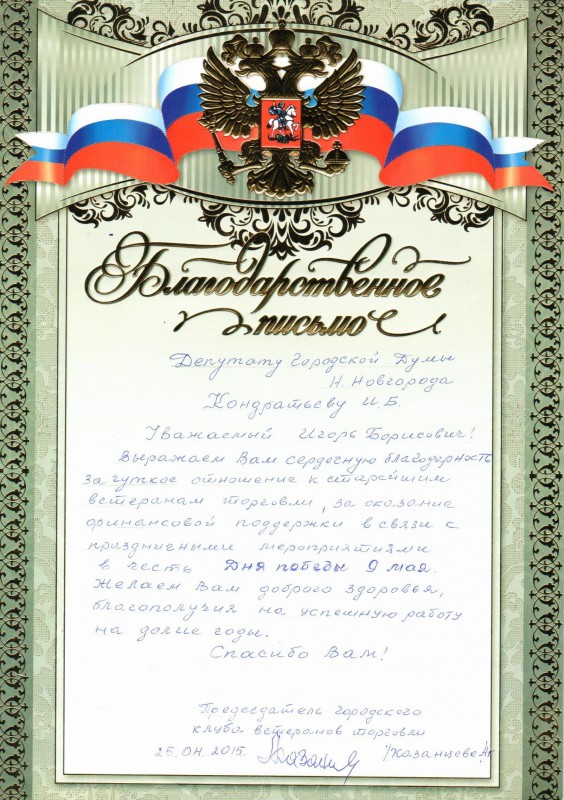 Благодарственное
письмо
Депутату Городской Думы
Н. Новгорода
Кондратьеву И.Б.
Уважаемый Игорь Борисович!
Выражаем Вам сердечную благодарность
за чуткое отношение к старейшим
ветеранам торговли, за оказание
финансовой поддержки в связи с
праздничными мероприятиями
в честь Дня победы 9 мая.
Желаем Вам доброго здоровья,
благополучия на успешную работу
на долгие годы.
Спасибо Вам!
Председатель городского
клуба ветеранов торговли
25.04.2015. /Казанцева